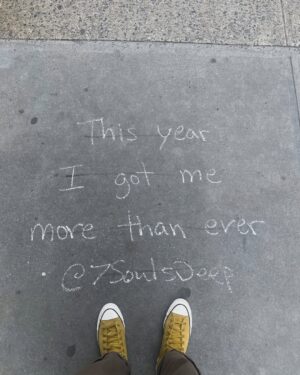 This year
I got me
more than ever
@7SoulsDeep